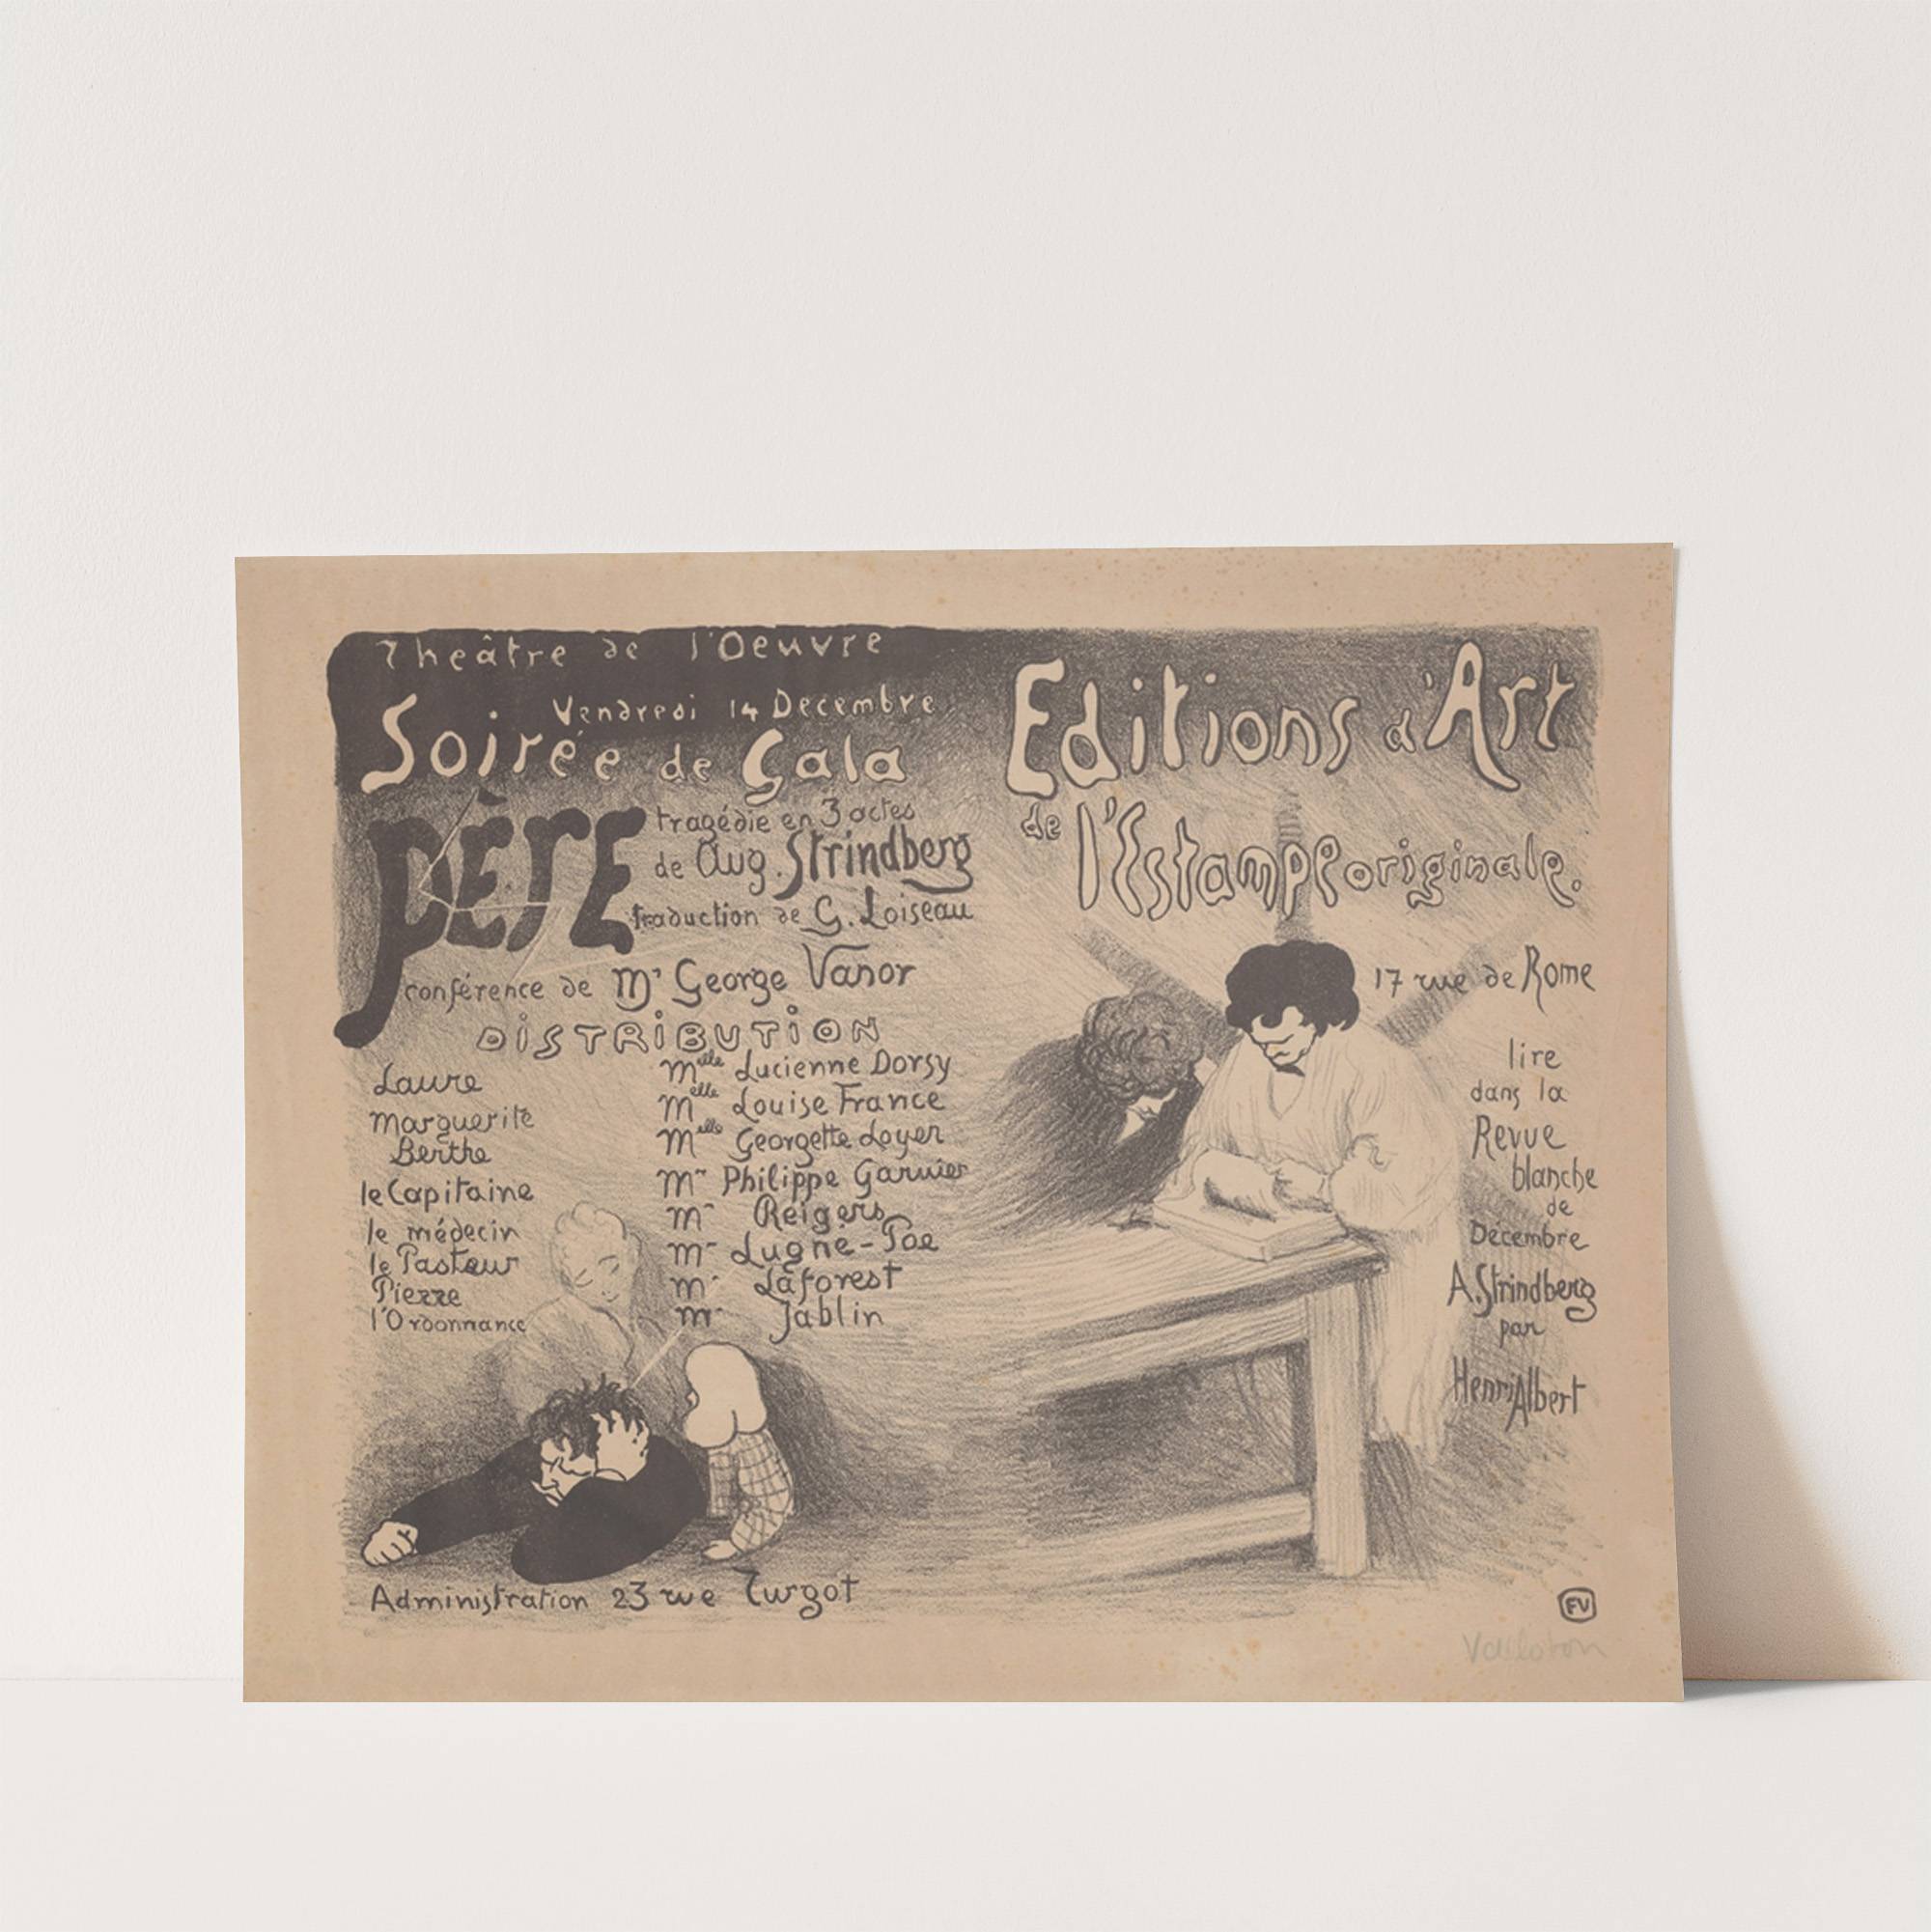 Théâtre de l'Oeuvre
Vendredi 14 Décembre
Soirée de Gala
PÈRE
tragédie en 3 actes
de Aug. Strindberg
traduction de G. Loiseau
conférence de Mr George Vanor
DISTRIBUTION
Laure Melle Lucienne Dorsy
Marguerite Melle Louise France
Berthe Melle Georgette Loyer
le Capitaine Mr Philippe Garnier
le médecin Mr Reigers
le Pasteur Mr Lugne-Poe
Pierre Mr Laforest
l'Ordonnance Mr Jablin
Administration 23 rue Turgot
Editions d'Art
de l'Estampe originale.
17 rue de Rome
lire
dans la
Revue
blanche
de
Décembre
A. Strindberg
par
Henri Albert
FV
Vallotton